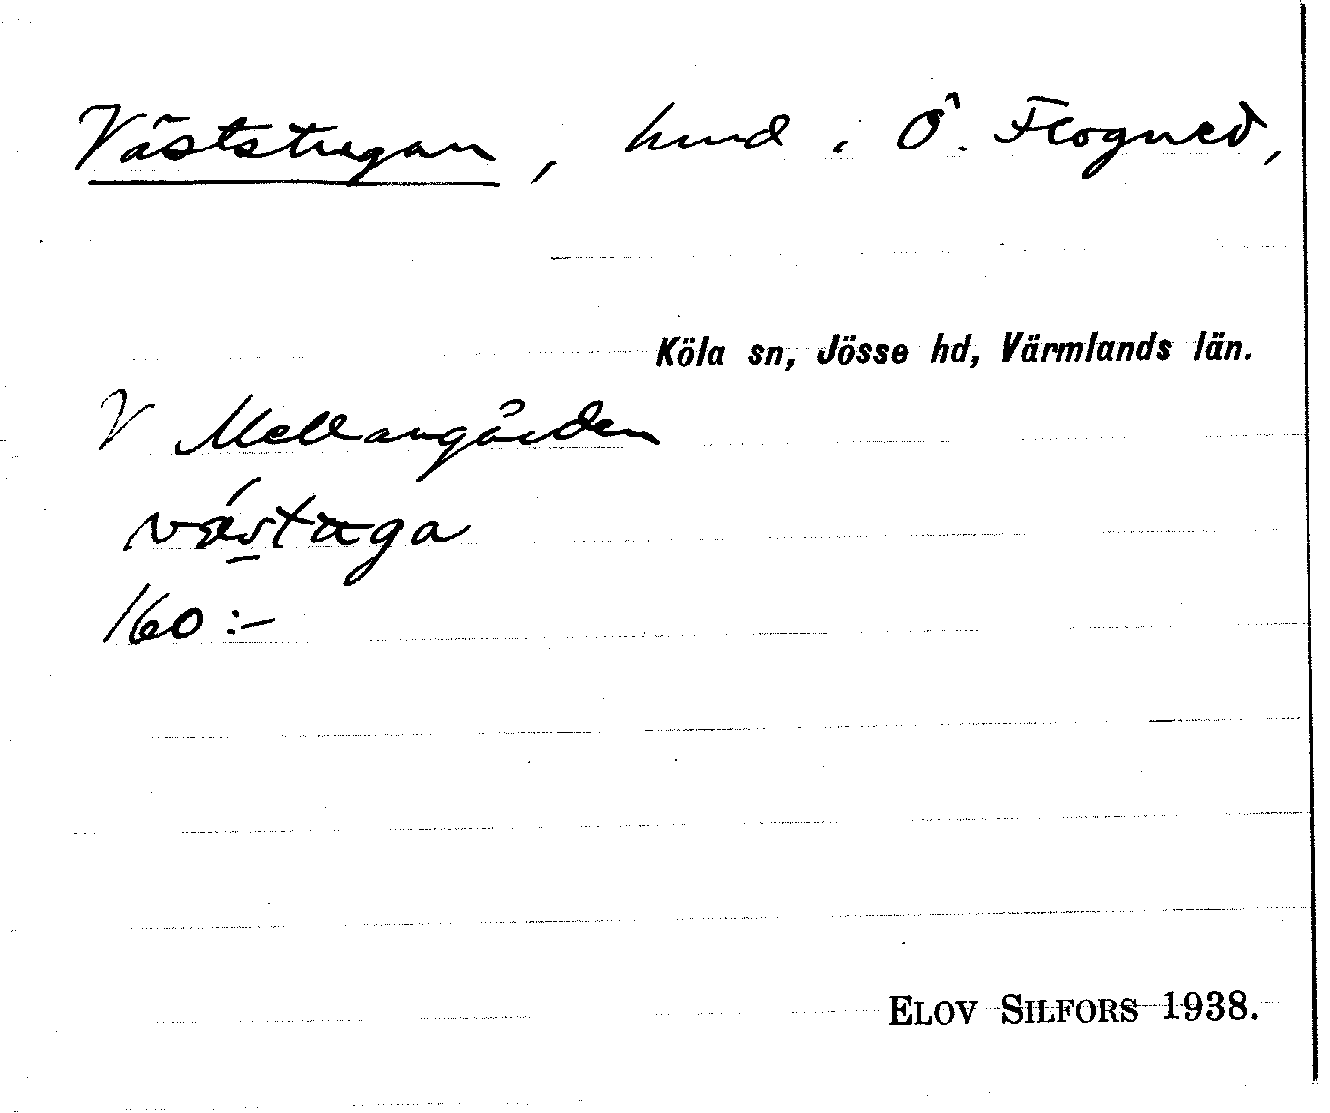 Väststugan, hmd i Ö. Flogned,
Köla sn, Jösse hd, Värmlands län.
V Mellangården
160:-
ELOV SILFORS 1938.